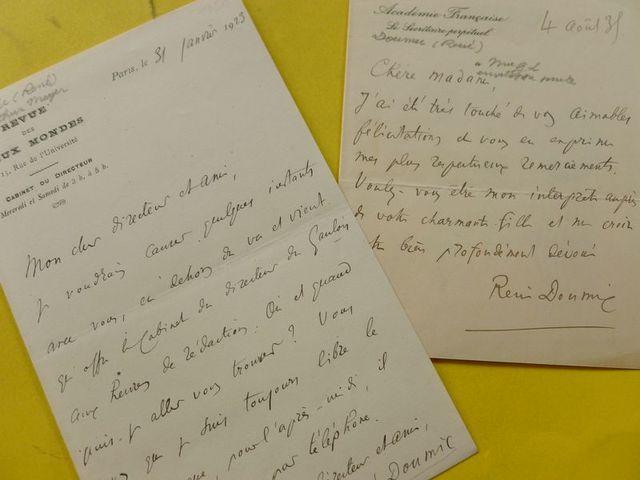 Paris, le 31 Janvier 1923
(René)
REVUE
DES
UX MONDES
15, Rue de l'Université
CABINET DU DIRECTEUR
Mercredi et Samedi de 2 h. à 5 h.
Mon cher directeur et ami,
Je voudrais causer quelques instants
avec vous, en dehors du va et vient
qu'offre le Cabinet du directeur du Gaulois
aux heures de rédaction. Où et quand
puis-je aller vous trouver ? Vous
que je suis toujours libre le
que, pour l'après-midi, il
par téléphone.
directeur et ami,
Doumic
Académie Française
Le Secrétaire perpétuel
4 Août 35
Doumic (René)
Chère madame,
J'ai été très touché de vos aimables
félicitations et vous en exprime
mes plus respectueux remerciements.
Voulez-vous être mon interprète auprès
de votre charmante fille et me croire
bien profondément dévoué
René Doumic